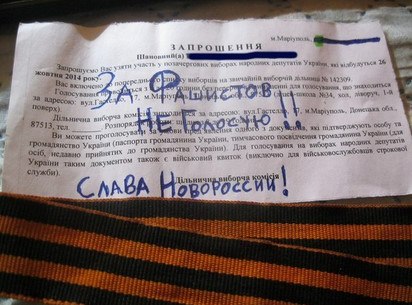 м.Маріуполь,
ЗАПРОШЕННЯ
Шановний(а)
Запрошуємо Вас узяти участь у позачергових виборах народних депутатів України, які відбудуться 26
жовтня 2014 року.
Вас включено до попереднього списку виборців на звичайній виборчій дільниці № 142309.
Голосування з 8 години без перерви
за адресою: вул.Гастелло, 17, м.Маріуполь школа №34, хол, дворуч, 1-й
поверх).
Дільнична виборча комісії адресою: вул.Гастелло м.Маріуполь, Донецька обл.
87513, тел. Розпорядок
Ви можете проголосувати за умови одного з документів, які підтверджують особу та
громадянство України (паспорта громадянина України, тимчасового посвідчення громадянина України (для
осіб, недавно прийнятих до громадянства України). Для голосування на виборах народних депутатів
України таким документом також є військовий квиток (виключно для військовослужбовців строкової
служби).
Дільнична виборча комісія
ЗА ФАШИСТОВ
НЕ ГОЛОСУЮ !!
СЛАВА НОВОРОССИИ!